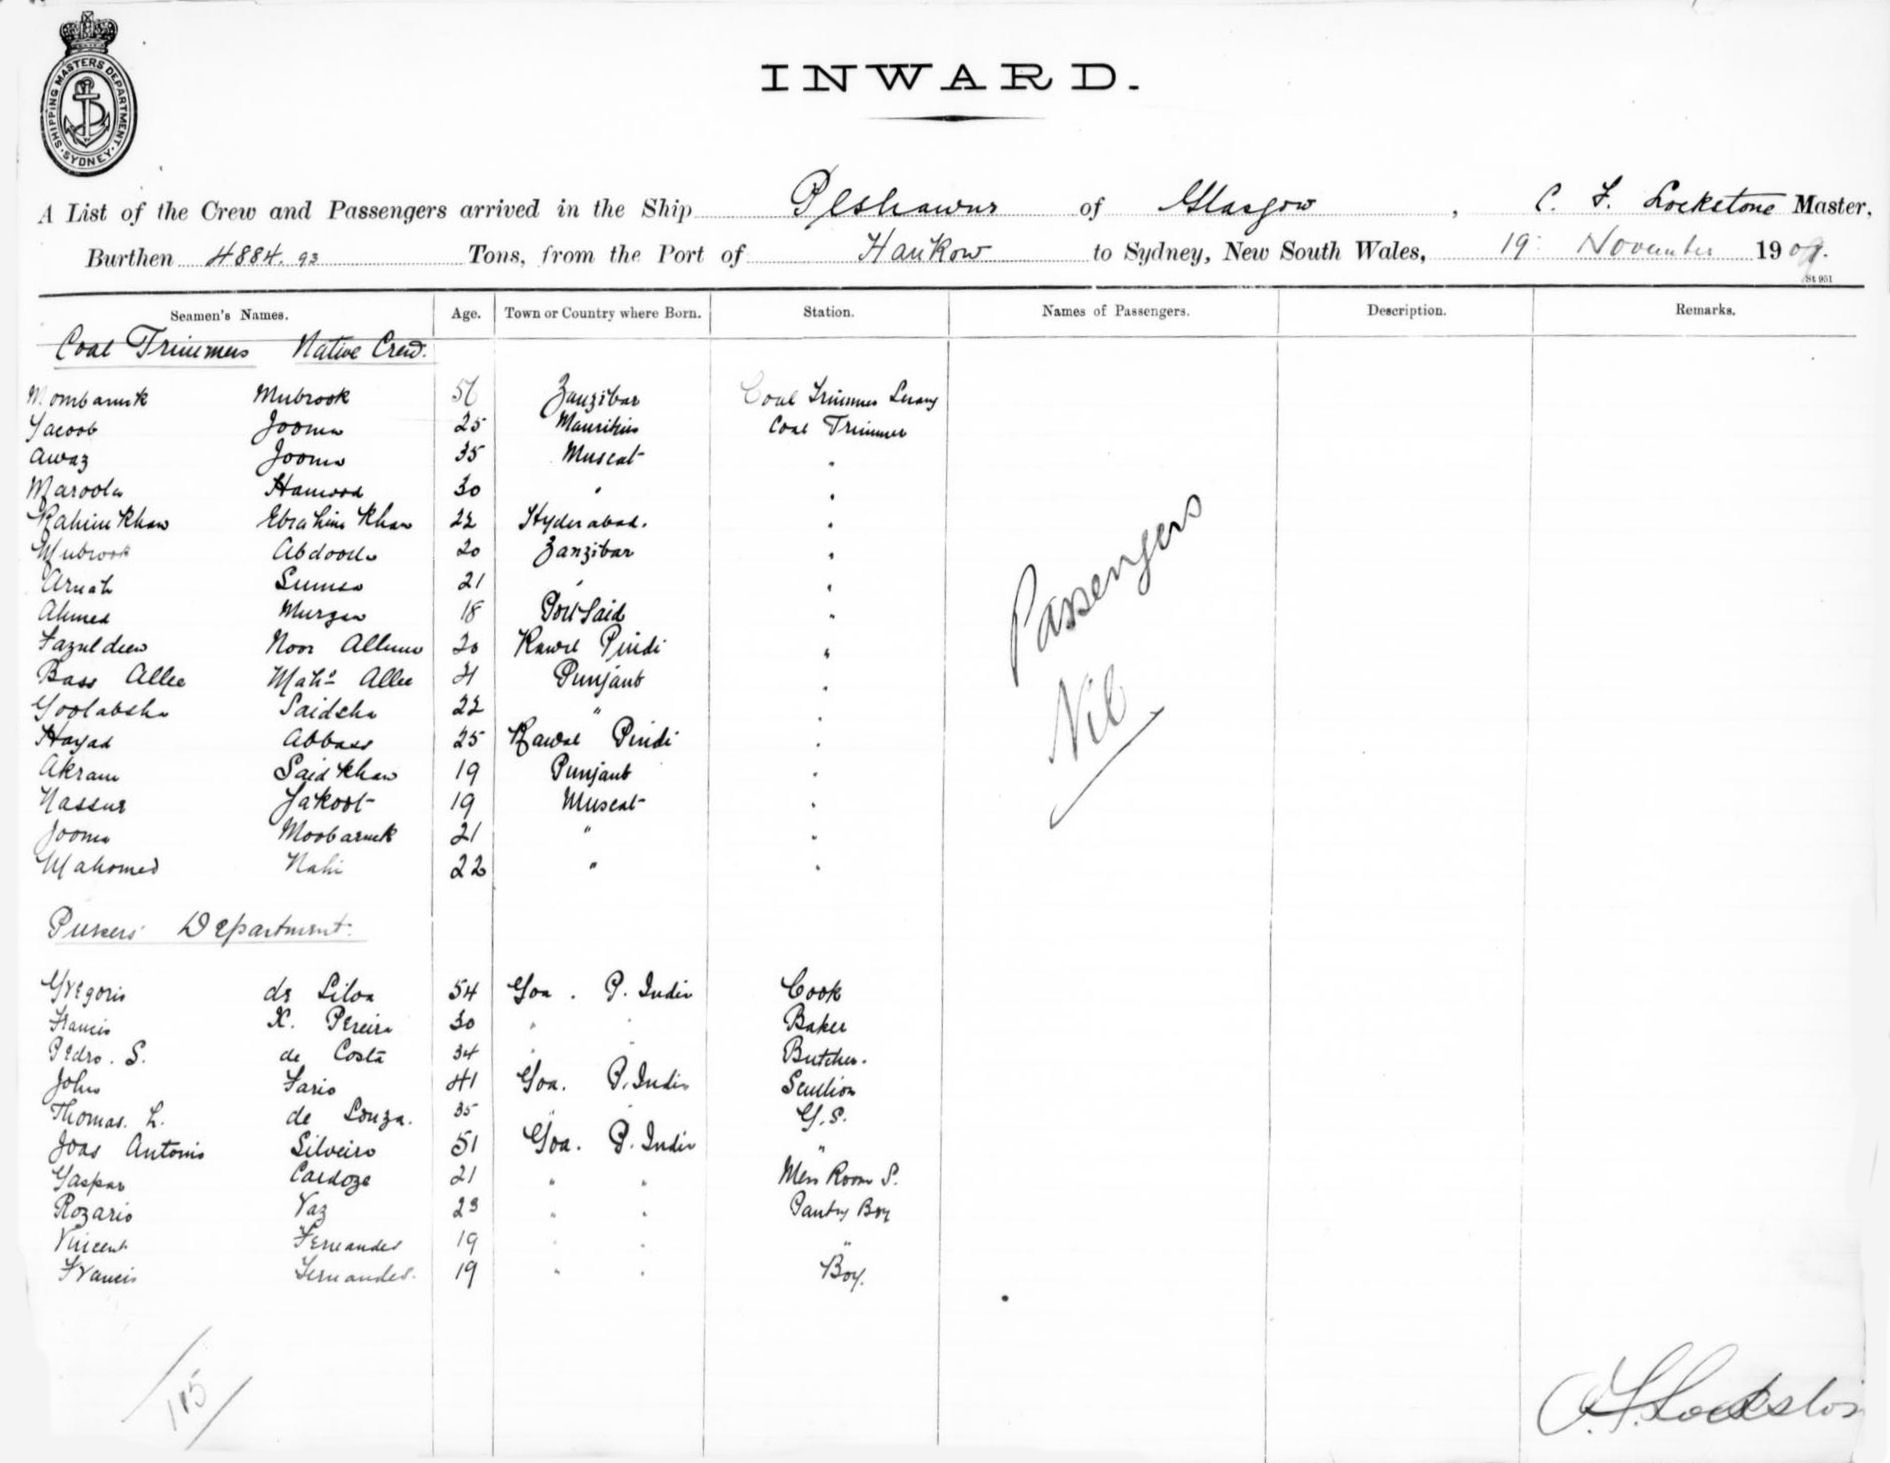 SHIPPING MASTERS DEPARTMENT
SYDNEY
INWARD.
A List of the Crew and Passengers arrived in the Ship Peshawur of Glasgow, C. F. Lockstone Master,
Burthen 4884.93 Tons, from the Port of Hankow to Sydney, New South Wales, 19 November 1909.
St 951
Seamen's Names. Age. Town or Country where Born. Station. Names of Passengers. Description. Remarks.
Coal Trimmers Native Crew.
Mombaruck Mubrook 51 Zanzibar Coal Trimmer Serang
Yacoob Jooma 25 Mauritius Coal Trimmer
Awaz Jooma 35 Muscat "
Maroola Hamood 30 " "
Rahim Khan Ebrahim Khan 22 Hyderabad. "
Mubrook Abdoola 20 Zanzibar "
Arnah Sumsa 21 " "
Ahmed Murgan 18 Port Said "
Fazuldeen Noor Allum 20 Rawl Pindi "
Bass Allee Mahd Allee 21 Punjaub "
Goolabsha Saidsha 22 " "
Hayad Abbass 25 Rawal Pindi "
Akram Said Khan 19 Punjaub "
Nassur Yakoot 19 Muscat "
Jooma Moobaruck 21 " "
Mahomed Nahi 22 " "
Passengers
Nil
Pursers' Department.
Gregorio de Silva 54 Goa. P. India Cook
Francis X. Pereira 30 " " Baker
Pedro. S. de Costa 34 " " Butcher.
John Fario 41 Goa. P. India Scullion
Thomas. L. de Souza. 35 " " G. S.
Joas Antonio Silveiro 51 Goa. P. India "
Gaspar Cardoza 21 " " Mess Room S.
Rozario Vaz 23 " " Pantry Boy
Vincent Fernandes 19 " " "
Francis Fernandes. 19 " " Boy.
115
C. F. Lockstone